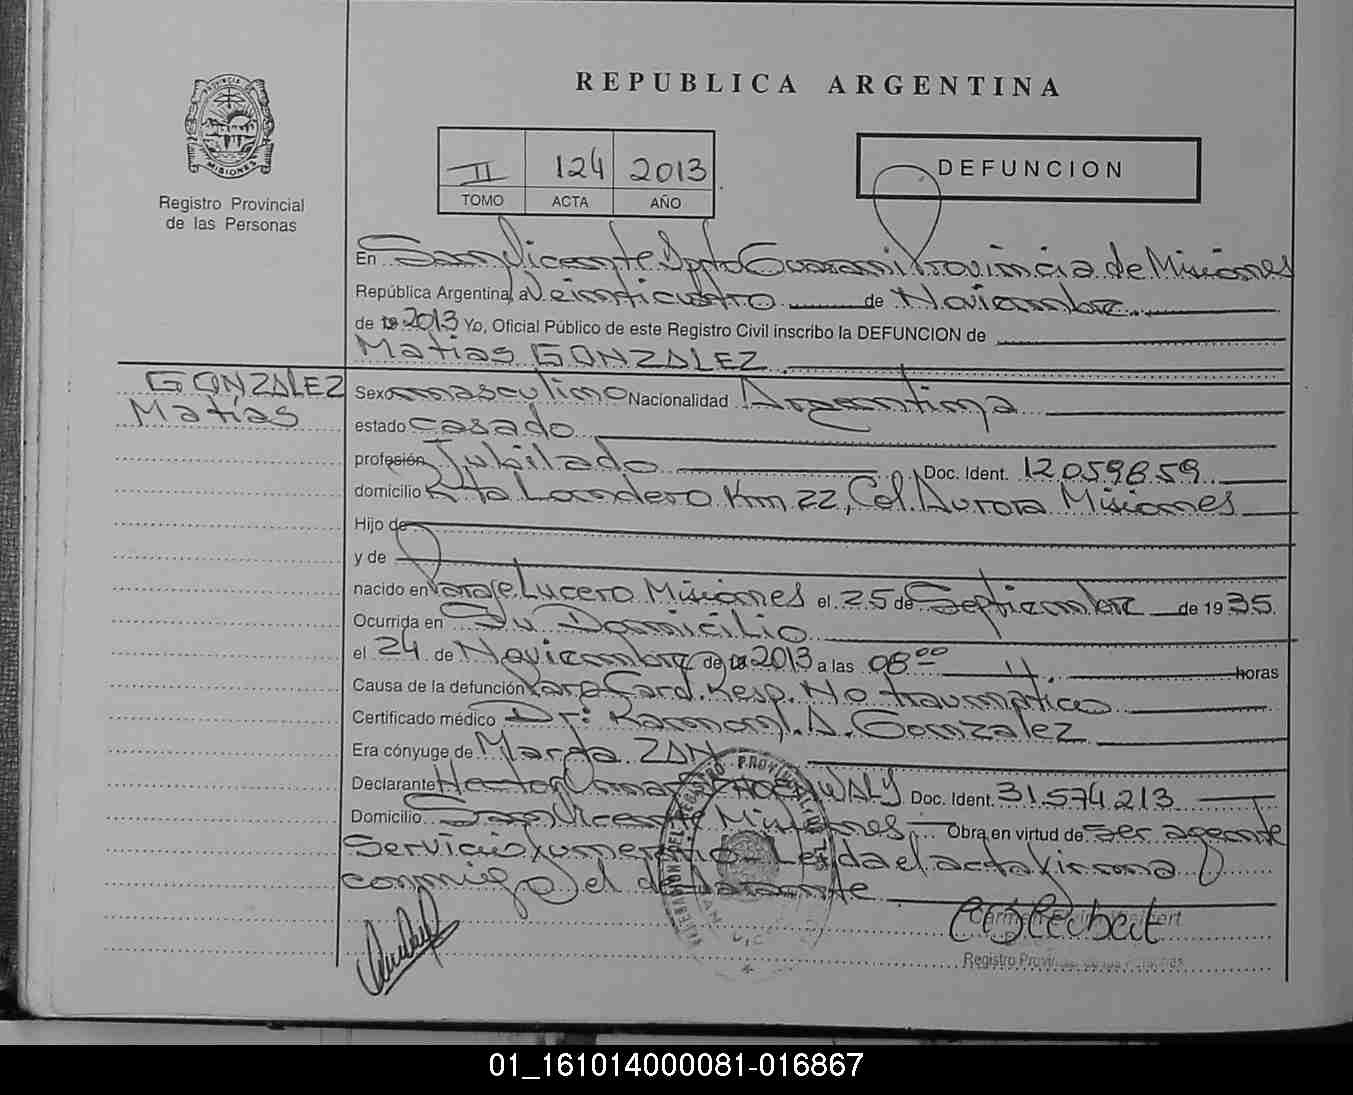 REPUBLICA ARGENTINA
PROVINCIA DE
MISIONES
Registro Provincial
de las Personas
II 124 2013
TOMO ACTA AÑO
DEFUNCION
En San Vicente Dpto Guarani Provincia de Misiones
República Argentina, a Veinticuatro de Noviembre
de 2013 Yo, Oficial Público de este Registro Civil inscribo la DEFUNCION de
Matias GONZALEZ
GONZALEZ
Matías
Sexo masculino Nacionalidad Argentina
estado casado
profesión Jubilado Doc. Ident. 12.059.859
domicilio Rta Landero Km 22, Col. Aurora Misiones
Hijo de
y de
nacido en Paraje Lucero Misiones el 25 de Septiembre de 1935.
Ocurrida en Su Domicilio
el 24 de Noviembre de 2013 a las 08 00 horas
Causa de la defunción Paro Card. Resp. No traumatico
Certificado médico Dr: Ramon A. Gonzalez
Era cónyuge de Marta ZAN
Declarante Hector Omar Doc. Ident. 31.574.213
Domicilio San Vicente Misiones, Obra en virtud de ser agente
Servicio funerario - Leida el acta firma
conmigo el declarante
Registro
01_161014000081-016867